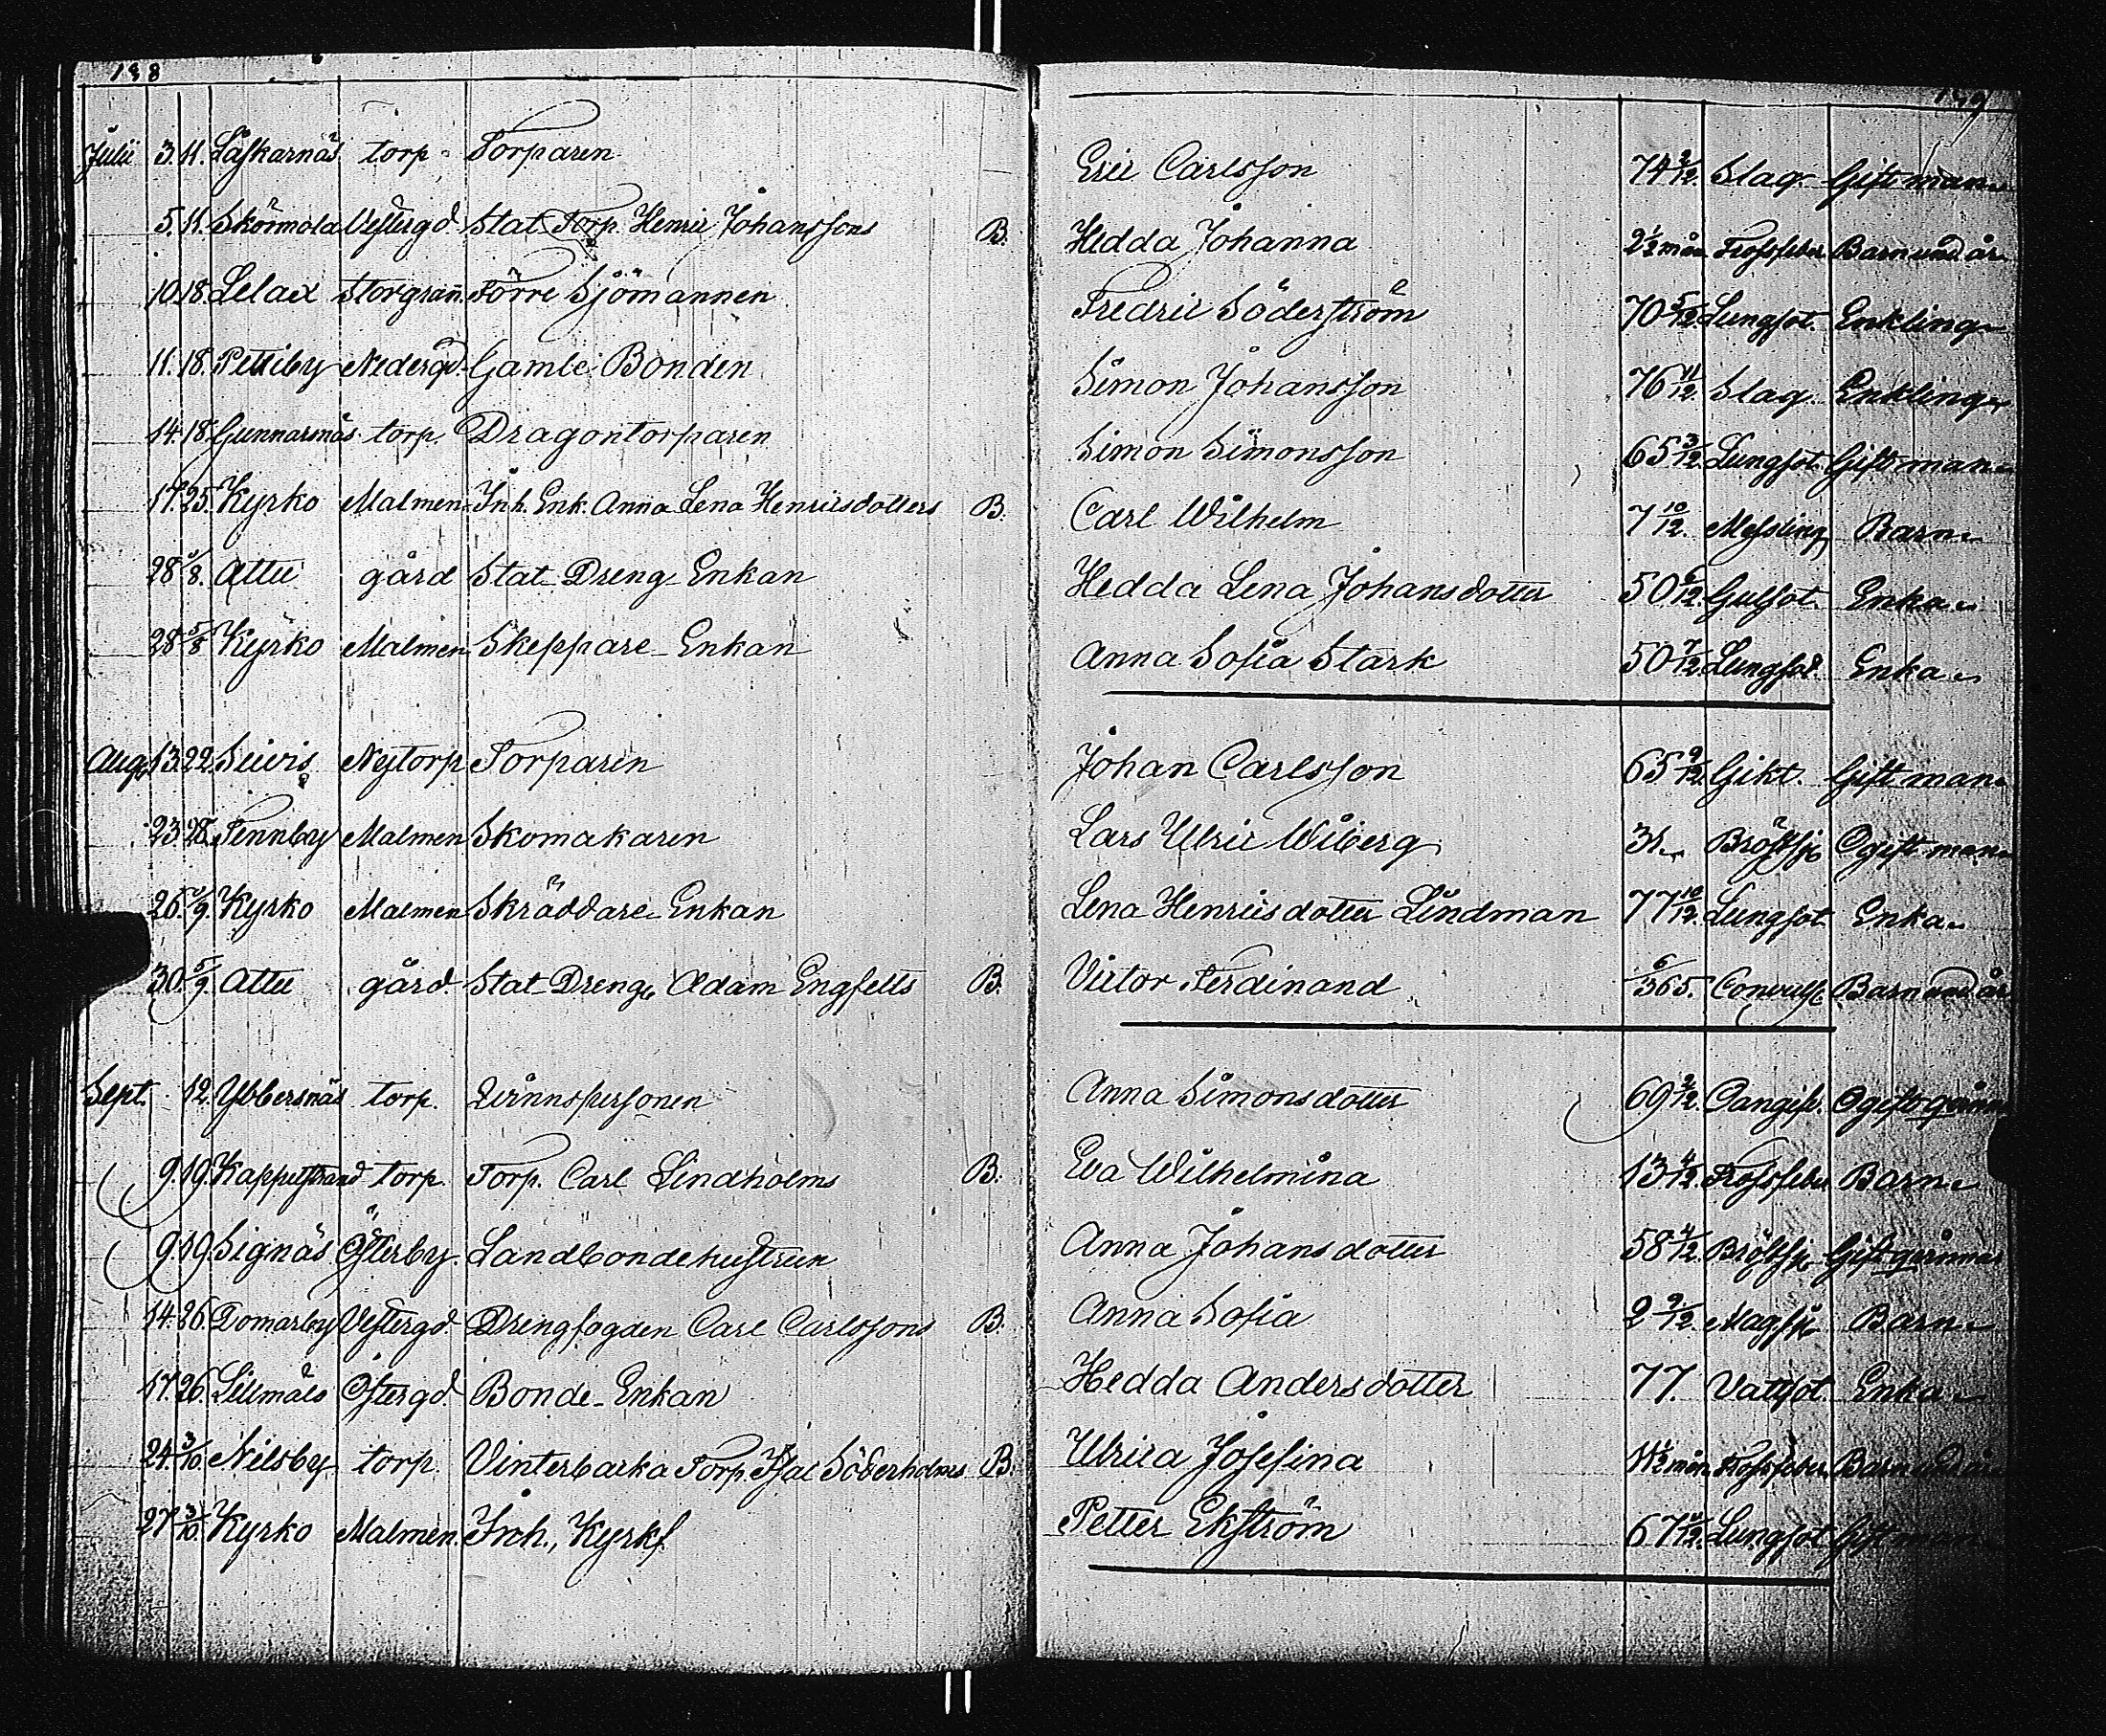 188
189
Julii 3. 11. Laskarnäs torp Torparen Eric Carlsson 74 2/12. Slag. Gift man
5. 11. Skörmola Vestergd Stat Torp. Henric Johanssons B. Hedda Johanna 2 1/2 mån Frossfeber Barn und år
10 18. Lelax Storgrann. Förre Sjömannen Fredric Söderström 70 5/12 Lungsot. Enkling
11. 18. Pettiby Nedergd. Gamle Bonden Simon Johansson 76 11/12. Slag. Enkling
14. 18. Gunnarsnäs torp. Dragontorparen Simon Simonsson 65 3/12. Lungsot. Gift man
17. 25. Kyrko Malmen Inh. Enk. Anna Lena Henricsdotters B. Carl Wilhelm 7 10/12. Messling Barn
28 1/8. Attu gård Stat Dreng Enkan Hedda Lena Johansdotter 50 6/12. Gulsot. Enka
28 5/8 Kyrko Malmen Skeppare-Enkan Anna Sofia Stark 50 7/12. Lungsot. Enka
Aug. 13. 22. Seivis Nytorp Torparen Johan Carlsson 65 9/12. Gikt. Gift man
23. 28. Tennby Malmen Skomakaren Lars Ulric Wiberg 31. Bröstsj. Ogift man
26. 1/9. Kyrko Malmen Skräddare-Enkan Lena Henricsdotter Lindman 77 10/12. Lungsot Enka
30. 5/9. Attu gård. Stat-Dreng. Adam Engfelts B. Victor Ferdinand 6/365. Convuls. Barn und år
Sept. 12. Ybbersnäs torp. Qvinnspersonen Anna Simonsdotter 69 2/12. Ogift qvinna
9. 19. Kappelstrand torp. Torp. Carl Lindholms B. Eva Wilhelmina 13 4/12. Frossfeber Barn
9. 19. Signäs Österby. Landbondehustrun Anna Johansdotter 58 4/12. Bröstsj. Gift qvinna
14. 26. Domarby Vestergd. Drengfogden Carl Carlssons B. Anna Sofia 2 9/12. Magsj. Barn
17. 26. Lillmälo Östergd. Bonde-Enkan Hedda Andersdotter 77. Vattsot. Enka
24. 3/10. Nilsby torp. Vinterbacka Torp. Isac Söderholms B. Ulrica Josefina 11 1/2 mån. Frossfeber. Barn und år
27 3/10. Kyrko Malmen. Inh., Kyrkf. Petter Ekström 67 Lungsot Gift man